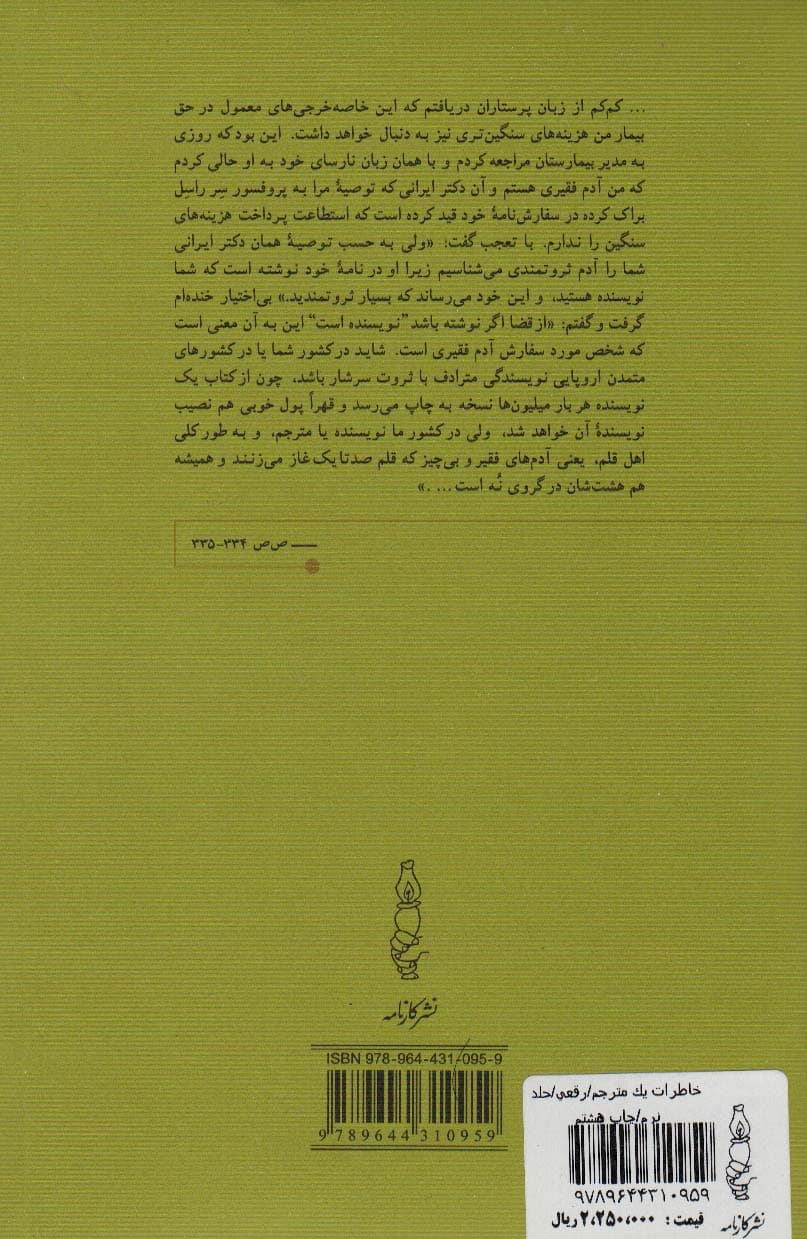 ... کم‌کم از زبان پرستاران دریافتم که این خاصه‌خرجی‌های معمول در حق
بیمار من هزینه‌های سنگین‌تری نیز به دنبال خواهد داشت. این بود که روزی
به مدیر بیمارستان مراجعه کردم و با همان زبان نارسای خود به او حالی کردم
که من آدم فقیری هستم و آن دکتر ایرانی که توصیهٔ مرا به پروفسور سِر راسِل
براک کرده در سفارش‌نامهٔ خود قید کرده است که استطاعت پرداخت هزینه‌های
سنگین را ندارم. با تعجب گفت: «ولی به حسب توصیهٔ همان دکتر ایرانی
شما را آدم ثروتمندی می‌شناسیم زیرا او در نامهٔ خود نوشته است که شما
نویسنده هستید، و این خود می‌رساند که بسیار ثروتمندید.» بی‌اختیار خنده‌ام
گرفت و گفتم: «از قضا اگر نوشته باشد "نویسنده است" این به آن معنی است
که شخص مورد سفارش آدم فقیری است. شاید در کشور شما یا در کشورهای
متمدن اروپایی نویسندگی مترادف با ثروت سرشار باشد، چون از کتاب یک
نویسنده هر بار میلیون‌ها نسخه به چاپ می‌رسد و قهراً پول خوبی هم نصیب
نویسندهٔ آن خواهد شد، ولی در کشور ما نویسنده یا مترجم، و به طور کلی
اهل قلم، یعنی آدم‌های فقیر و بی‌چیز که قلم صدتا یک غاز می‌زنند و همیشه
هم هشت‌شان در گروی نُه است... .»
ــــ ص‌ص ۳۳۴-۳۳۵
نشر کارنامه
ISBN 978-964-431-095-9
9 789644 310959
خاطرات یك مترجم/رقعی/جلد
نرم/چاپ هشتم
۹۷۸۹۶۴۴۳۱۰۹۵۹
قیمت : ۲،۲۵۰،۰۰۰ ریال
نشر کارنامه